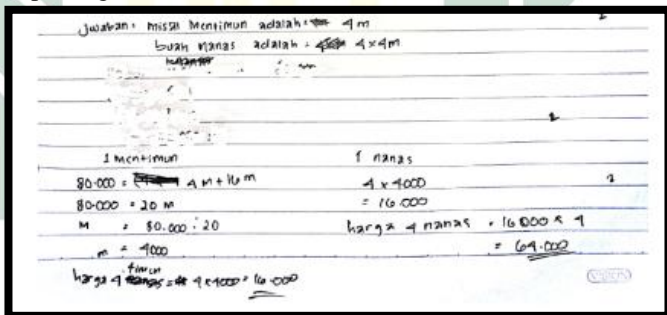 Jwaban: misal Mentimun adalah = 4 m
buah nanas adalah = 4x4m
1 mentimun
80.000 = 4 M + 16 m
80.000 = 20 M
M = 80.000 : 20
m = 4000
harga 4 timun = 4x4000 = 16.000
1 nanas
4 x 4000
= 16.000
harga 4 nanas = 16000 x 4
= 64.000